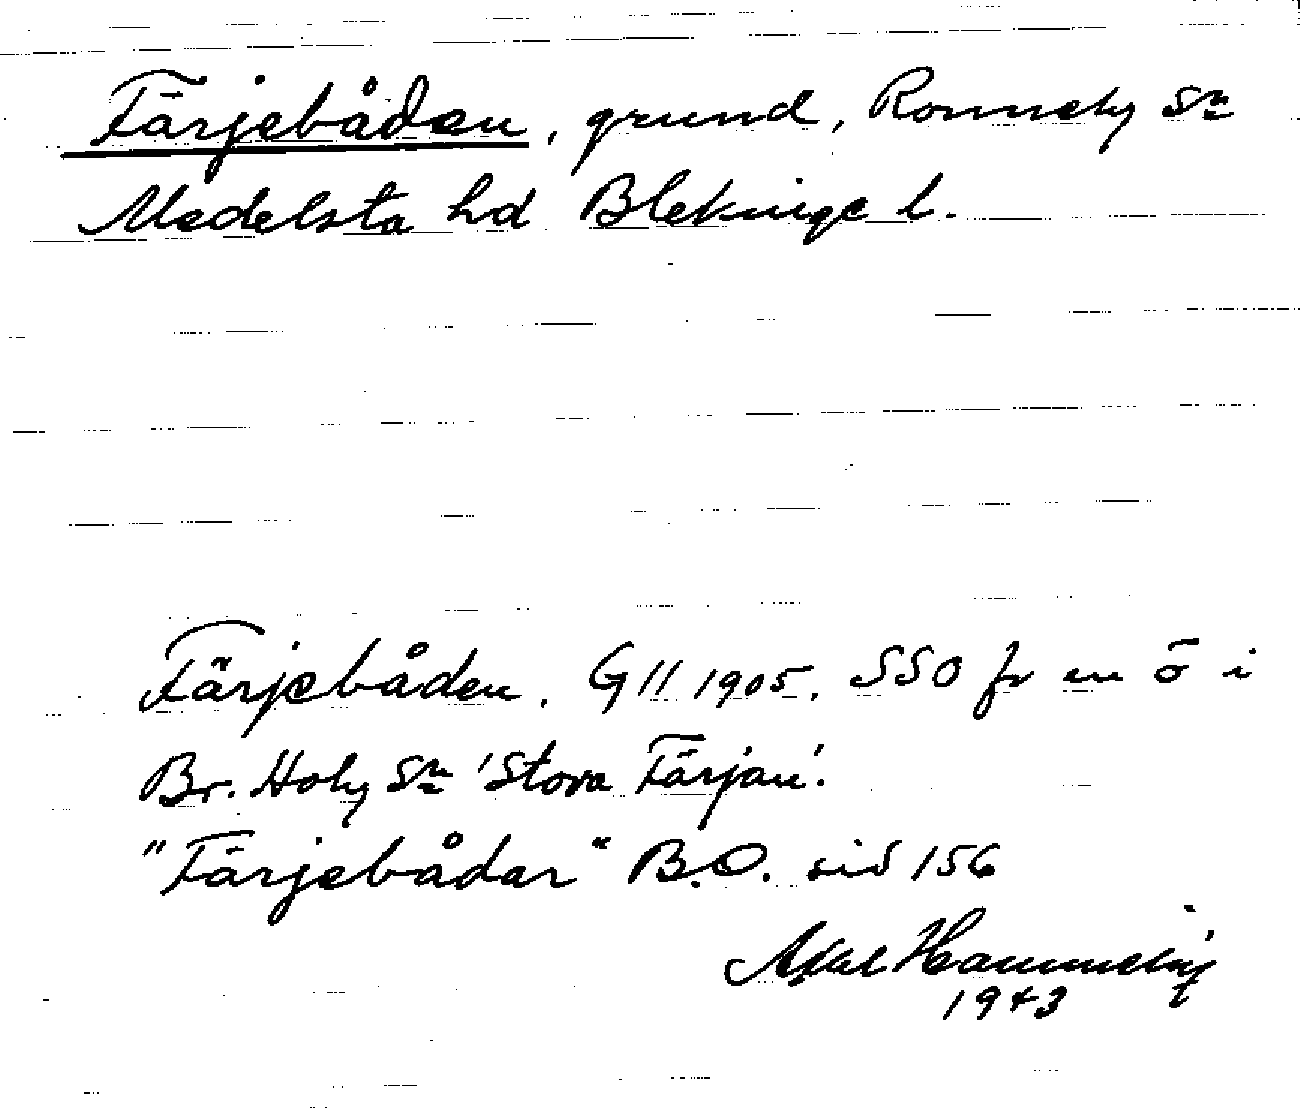 Färjebåden, grund, Ronneby sn
Medelsta hd Blekinge l.
Färjebåden. G11 1905. SSO fr en ö i
Br. Hoby sn 'Stora Färjan'.
"Färjebådar" B.O. sid 156
Axel Hammeby
1943